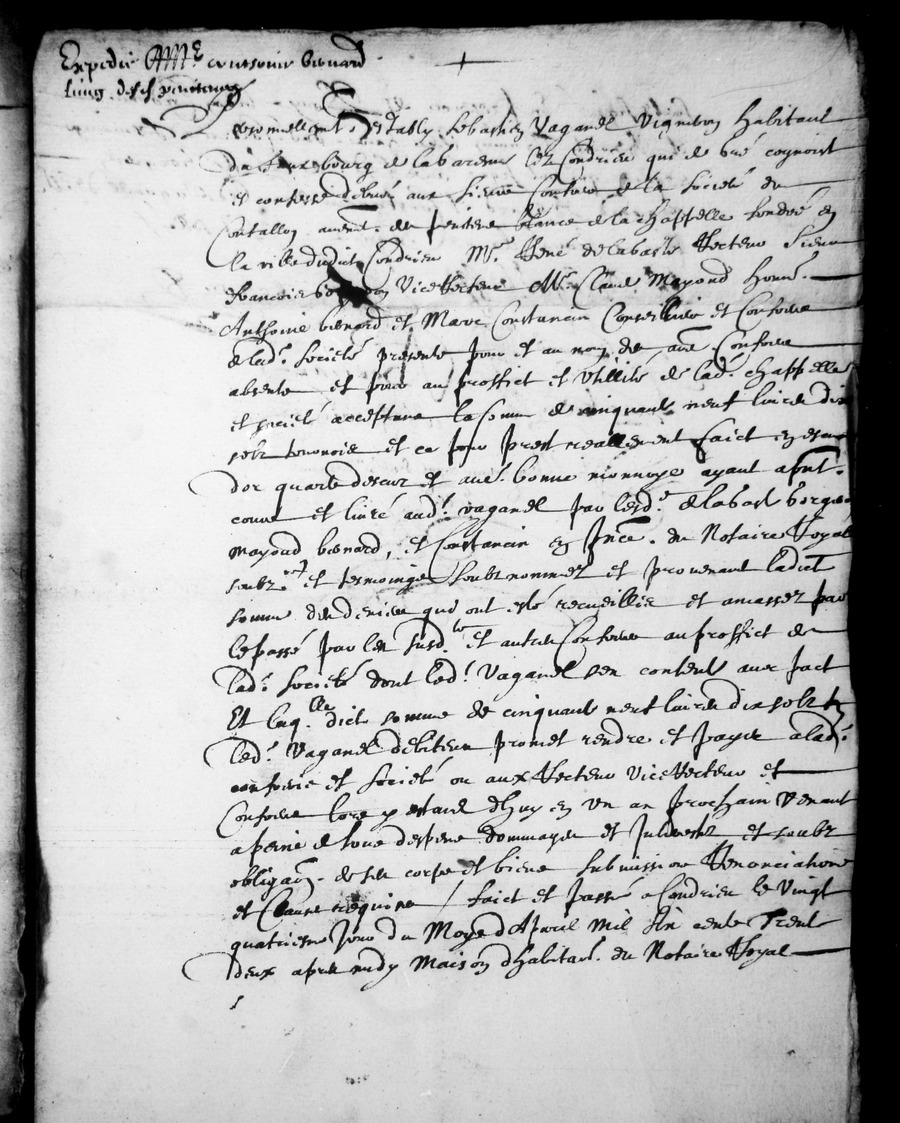 Expedié A Me anthoine bienard
lung desd penitens
Personnellemt estably Sebastien Vaganel Vigneron habitant
du faux bourg de la bardeme lez Condrieu qui de gré cognoist
et confesse debvoir aux sieurs Confreres de la Societé du
Confallon de penitens blancs de la chappelle fondée en
la ville dudict Condrieu Mr. René delabarde Recteur Sieur
francois Vice Recteur Me Claude Mayoud honne.
Anthoine bienard et Marc Constancin Conseilliers et Confreres
de lad. Societé presents pour et au nom des aues Confreres
absents et pour au proffict et utillité de lad. chappelle
et societé acceptans la somme de cinquante neuf livres dix
solz tournois et ce pour prest reallement faict en escus
dor quarts descuz et aue. bonne monnoye ayant a pnt.
cours et livré aud. vaganel par lesd. delabard
mayoud bienard, et Constancin en pnce. du Notaire Royal
soubzne et tesmoings soubznommez et provenant ladicte
somme des deniers qui ont esté recueillis et amassez par
le passé par les susd. et autres Confreres au proffict de
lad. Societé dont led. Vaganel sen contente avec pact
Et laqlle. dicte somme de cinquante neuf livres dix solz tz
led. Vaganel debiteur promet rendre et payer a lad.
confrerie et Societé ou aux Recteur Vice Recteur et
Confreres lors estant dhuy en un an prochain venant
a peine de tous despens dommages et Interestz et soubz
obligaon. de ses corps et biens submissions Renonciations
et Clauses requises / faict et passé a Condrieu le Vingt
quatriesme jour du Moys d Apvril mil six cents Trente
deux apres midy Maison dhabitaon. du Notaire Royal